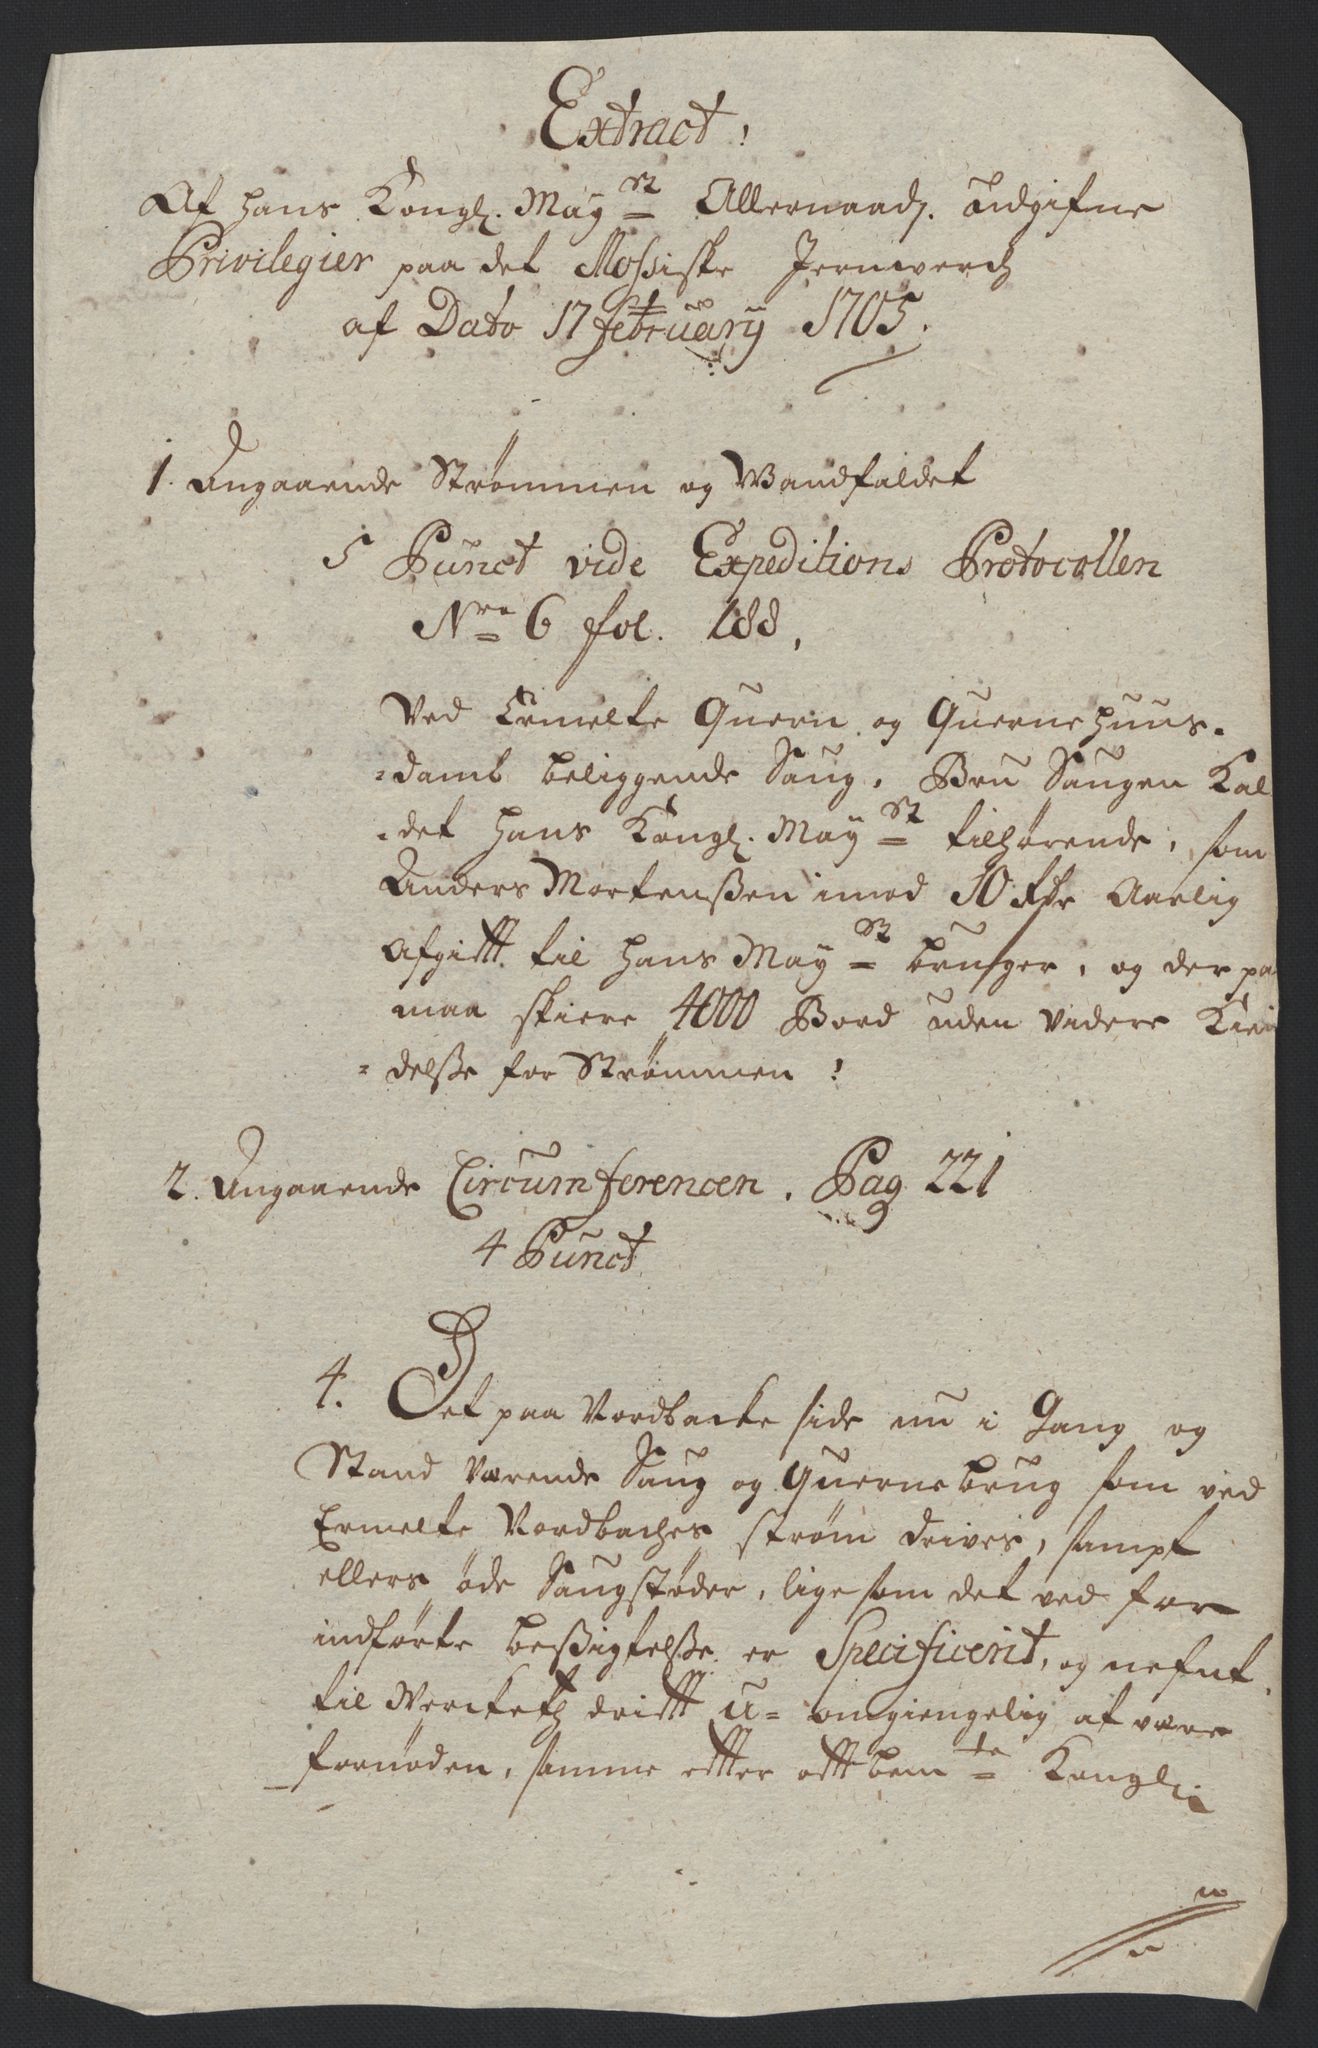 Extract!
Af hans Kongl. May.st Allernaad. udgifne
Privilegier paa det Mossiske Jernwerch
af Dato 17 february 1705.
1. Angaaende Strømmen og Wandfaldet
5 Punct vide Expeditions Protocollen
Nro 6 fol. 188,
Ved Ermelte Quern og Quernehuus-
=damb beliggende Saug, Bru Saugen Kal
=det hans Kongl. May.st tilhørende, som
Anders Mortenßen imod 50 Rdr Aarlig
Afgifft til hans May.st bruger, og der pa
maa skiere 4000 Bord uden videre Kien
=delße for Strømmen!
2. Angaaende Circumferencen. Pag 221
4 Punct
4. Det paa Vordbacke side nu i Gang og
Stand værende Saug og Quernebrug som ved
Ermelte Vordbaches strøm drives, sampt
ellers øde Saugstøder, lige som det ved for
indførte beßigtelße er Specificerit, og nefnt
til Werketz drifft u= omgiengelig at være
fornøden, samme effter offtbem.te Kongl.